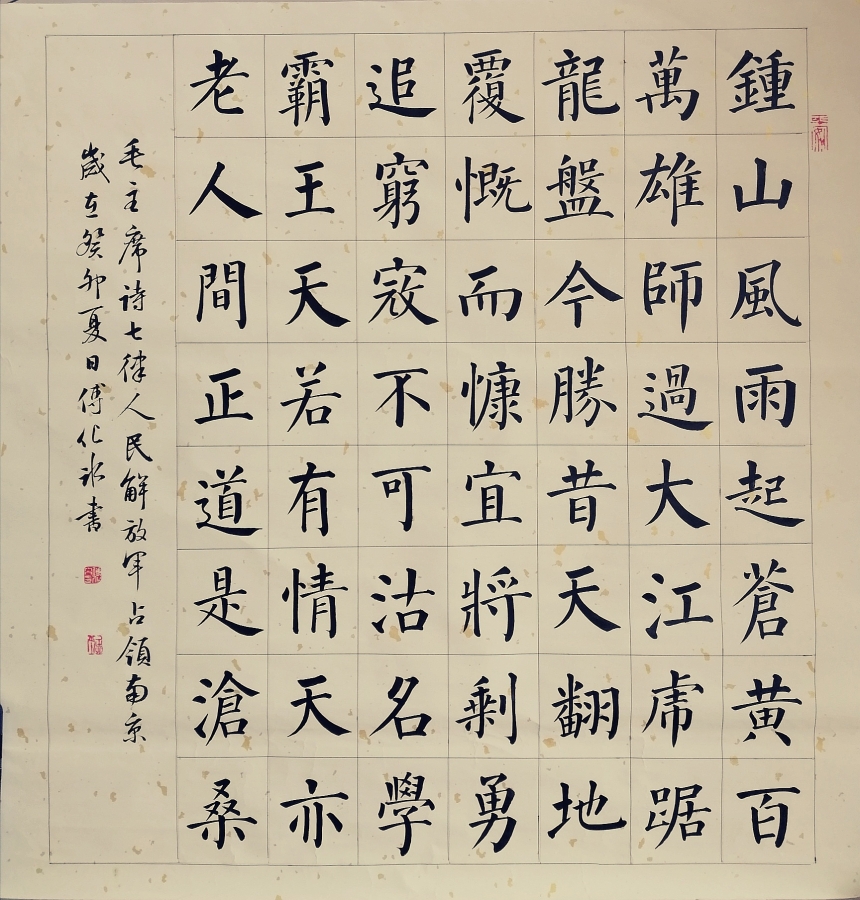 鍾山風雨起蒼黃百
萬雄師過大江虎踞
龍盤今勝昔天翻地
覆慨而慷宜將剩勇
追窮寇不可沽名學
霸王天若有情天亦
老人間正道是滄桑
毛主席诗七律人民解放军占领南京
歲在癸卯夏日傅化冰書